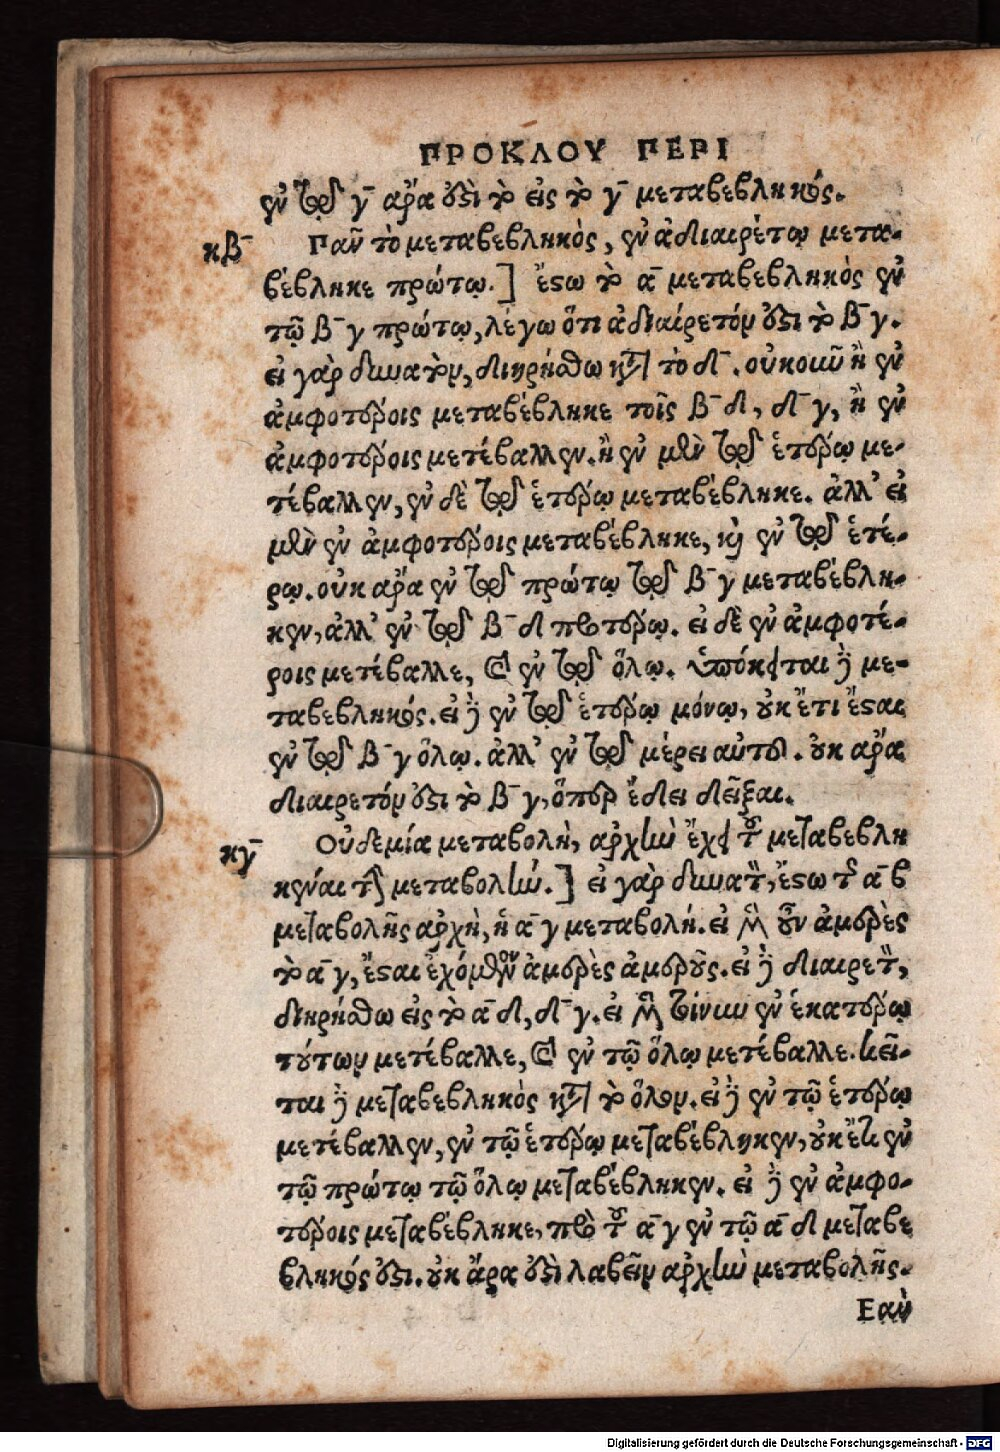 ΠΡΟΚΛΟΥ ΠΕΡΙ
ἐν τῷ γ̄ ἄρα ἐστὶ τὸ εἰς τὸ γ̄ μεταβεβληκός.
κβ̄ Πᾶν τὸ μεταβεβληκὸς, ἐν ἀδιαιρέτῳ μετα-
βέβληκε πρώτῳ.] ἔστω τὸ ᾱ μεταβεβληκὸς ἐν
τῷ β̄ γ πρώτῳ, λέγω ὅτι ἀδιαίρετόν ἐστι τὸ β̄ γ.
εἰ γὰρ δυνατὸν, διηρήσθω κατὰ τὸ δ̄. οὐκοῦν ἢ ἐν
ἀμφοτέροις μεταβέβληκε τοῖς β̄ δ, δ̄ γ, ἢ ἐν
ἀμφοτέροις μετέβαλλεν. ἢ ἐν μὲν τῷ ἑτέρῳ με-
τέβαλλεν, ἐν δὲ τῷ ἑτέρῳ μεταβέβληκε. ἀλλ' εἰ
μὲν ἐν ἀμφοτέροις μεταβέβληκε, καὶ ἐν τῷ ἑτέ-
ρῳ. οὐκ ἄρα ἐν τῷ πρώτῳ τῷ β̄ γ μεταβέβλη-
κεν, ἀλλ' ἐν τῷ β̄ δ προτέρῳ. εἰ δὲ ἐν ἀμφοτέ-
ροις μετέβαλλε, καὶ ἐν τῷ ὅλῳ. ὑπόκειται δὲ με-
ταβεβληκός. εἰ δὲ ἐν τῷ ἑτέρῳ μόνῳ, οὐκ ἔτι ἔσαι
ἐν τῷ β̄ γ ὅλῳ. ἀλλ' ἐν τῷ μέρει αὐτοῦ. οὐκ ἄρα
διαιρετόν ἐστι τὸ β̄ γ, ὅπερ ἔδει δεῖξαι.
κγ̄ Οὐδεμία μεταβολὴ, ἀρχὴν ἔχει τοῦ μεταβεβλη
κέναι τὴν μεταβολήν.] εἰ γὰρ δυνατὸν, ἔστω τῆς ᾱ β
μεταβολῆς ἀρχὴ, ἡ ᾱ γ μεταβολή. εἰ μὲν οὖν ἀμερὲς
τὸ ᾱ γ, ἔσαι ἐχόμενον ἀμερὲς ἀμεροῦς. εἰ δὲ διαιρετὸν,
διηρήσθω εἰς τὸ ᾱ δ, δ̄ γ. εἰ μὲν τοίνυν ἐν ἑκατέρῳ
τούτων μετέβαλλε, καὶ ἐν τῷ ὅλῳ μετέβαλλε. κεῖ-
ται δὲ μεταβεβληκὸς κατὰ τὸ ὅλον. εἰ δὲ ἐν τῷ ἑτέρῳ
μετέβαλλεν, ἐν τῷ ἑτέρῳ μεταβέβληκεν, οὐκ ἔτι ἐν
τῷ πρώτῳ τῷ ὅλῳ μεταβέβληκεν. εἰ δὲ ἐν ἀμφο-
τέροις μεταβέβληκε, πρὸ τοῦ ᾱ γ ἐν τῷ ᾱ δ μεταβε
βληκός ἐστι. οὐκ ἄρα ἐστὶ λαβεῖν ἀρχὴν μεταβολῆς.
Εαν
Digitalisierung gefördert durch die Deutsche Forschungsgemeinschaft - DFG